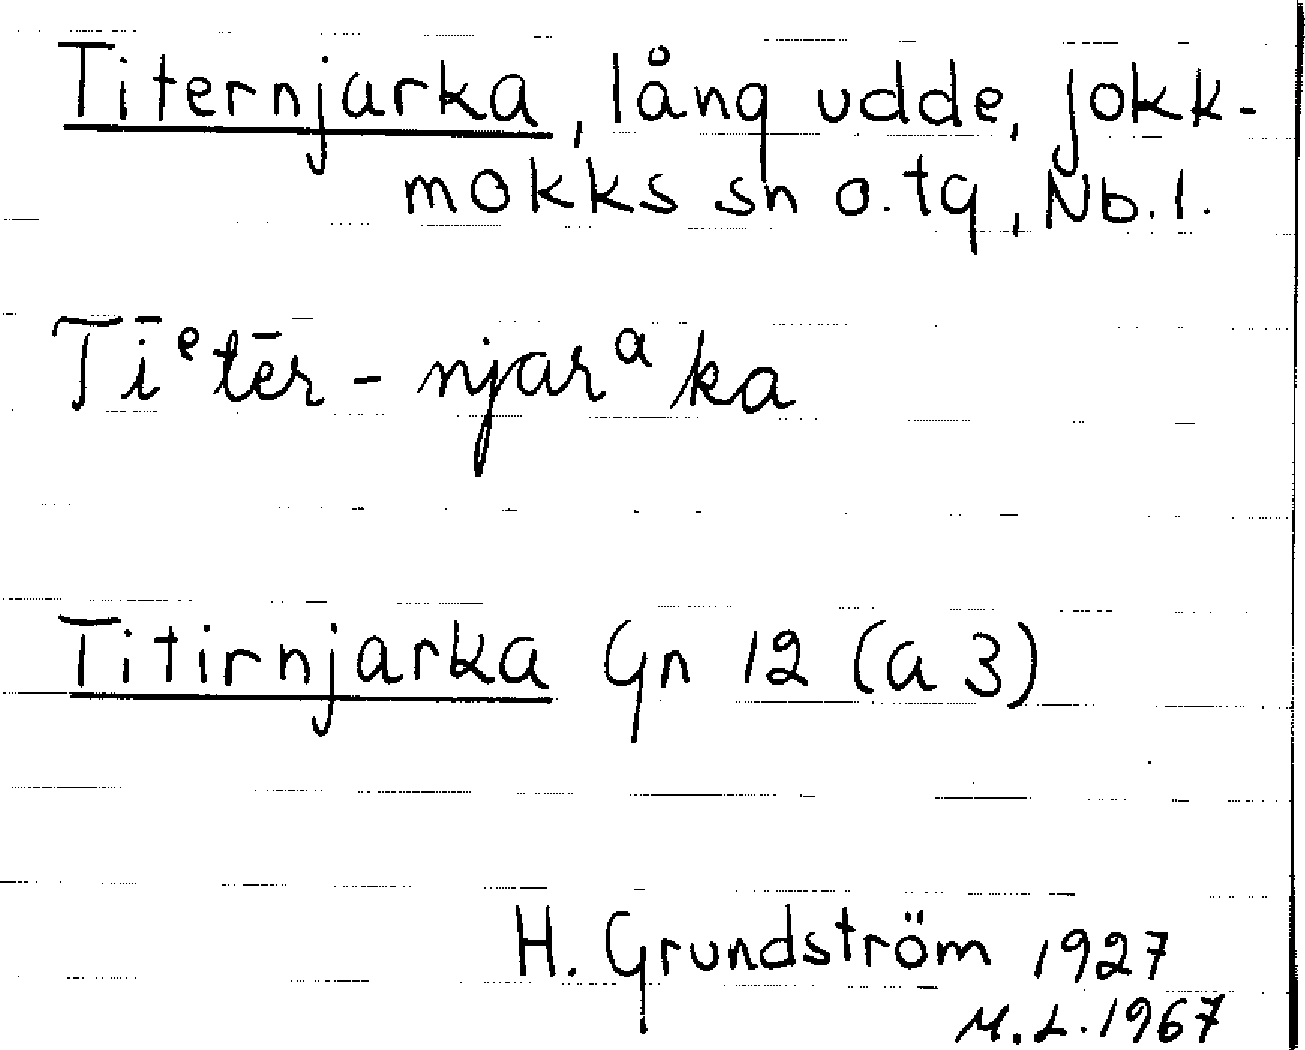 Titernjarka, lång udde, Jokk-
mokks sn o. tg, Nb. l.
Tīᵉtēr-njarᵃka
Titirnjarka Gn 12 (a 3)
H. Grundström 1927
M.L. 1967